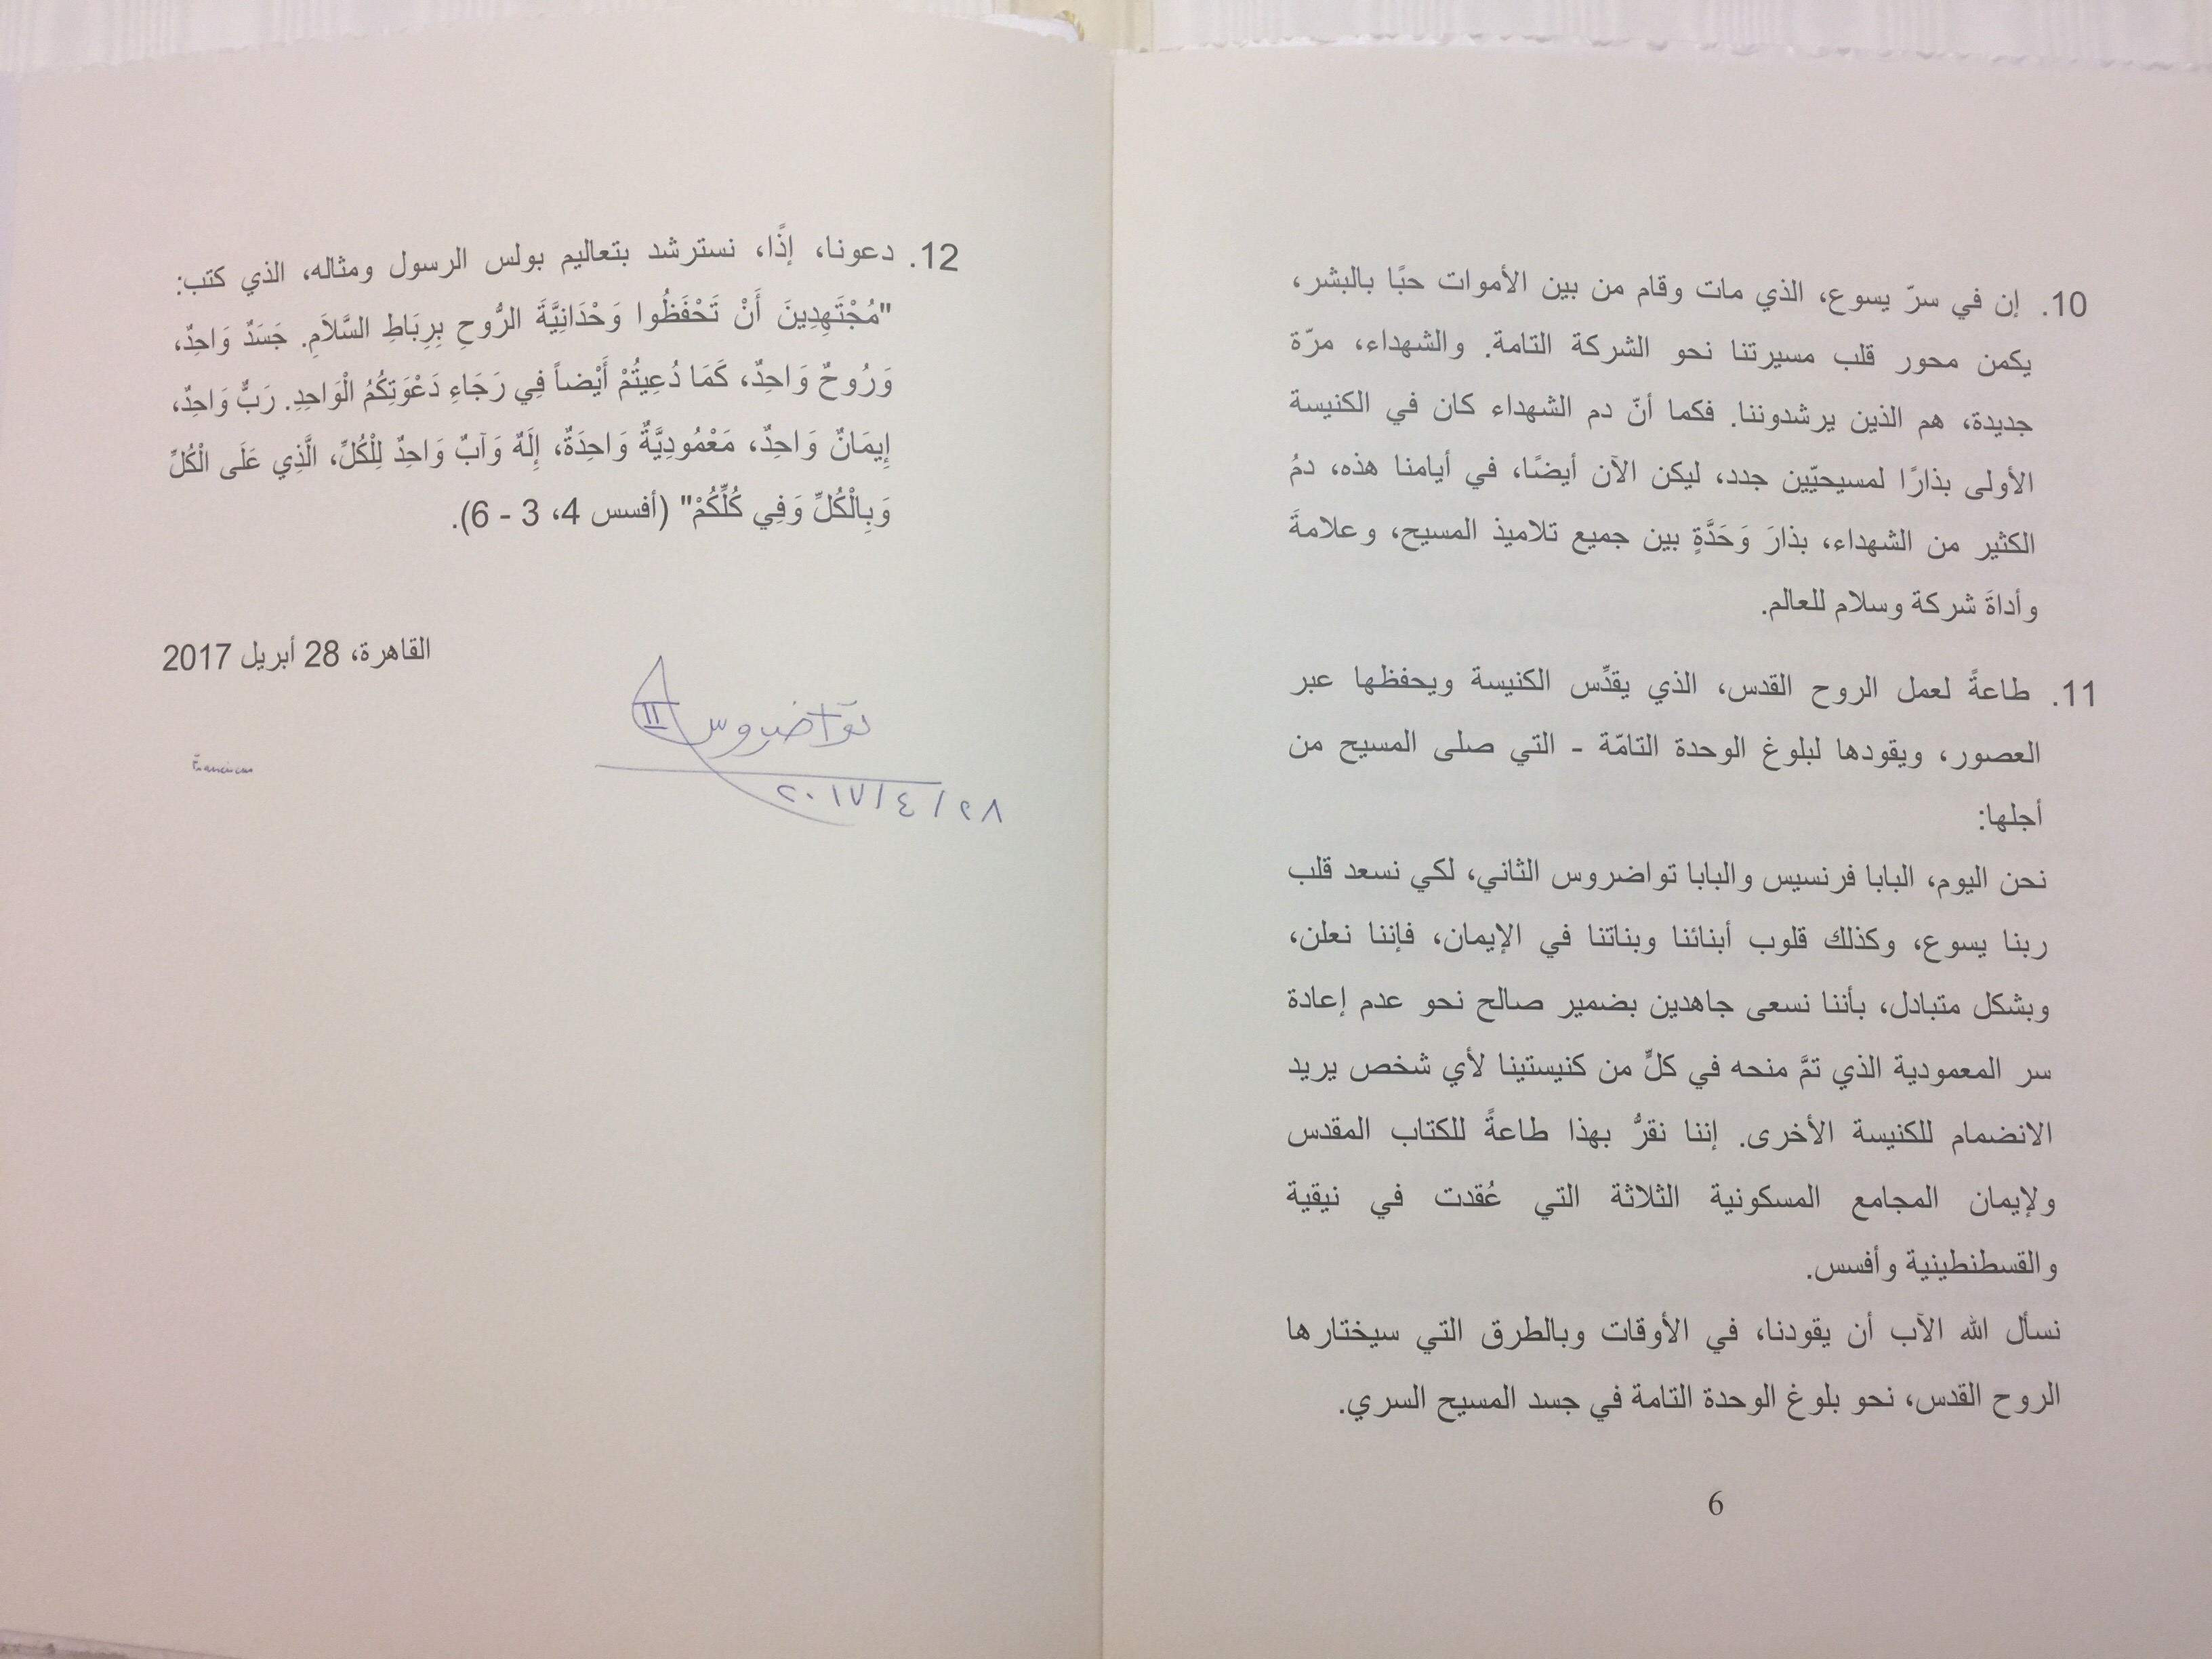 10. إن في سرّ يسوع، الذي مات وقام من بين الأموات حبًا بالبشر،
يكمن محور قلب مسيرتنا نحو الشركة التامة. والشهداء، مرّة
جديدة، هم الذين يرشدوننا. فكما أنّ دم الشهداء كان في الكنيسة
الأولى بذارًا لمسيحيّين جدد، ليكن الآن أيضًا، في أيامنا هذه، دمُ
الكثير من الشهداء، بذارَ وَحَدَّةٍ بين جميع تلاميذ المسيح، وعلامةَ
وأداةَ شركة وسلام للعالم.
11. طاعةً لعمل الروح القدس، الذي يقدِّس الكنيسة ويحفظها عبر
العصور، ويقودها لبلوغ الوحدة التامّة - التي صلى المسيح من
أجلها:
نحن اليوم، البابا فرنسيس والبابا تواضروس الثاني، لكي نسعد قلب
ربنا يسوع، وكذلك قلوب أبنائنا وبناتنا في الإيمان، فإننا نعلن،
وبشكل متبادل، بأننا نسعى جاهدين بضمير صالح نحو عدم إعادة
سر المعمودية الذي تمَّ منحه في كلٍّ من كنيستينا لأي شخص يريد
الانضمام للكنيسة الأخرى. إننا نقرُّ بهذا طاعةً للكتاب المقدس
ولإيمان المجامع المسكونية الثلاثة التي عُقدت في نيقية
والقسطنطينية وأفسس.
نسأل الله الآب أن يقودنا، في الأوقات وبالطرق التي سيختارها
الروح القدس، نحو بلوغ الوحدة التامة في جسد المسيح السري.
6
12. دعونا، إذًا، نسترشد بتعاليم بولس الرسول ومثاله، الذي كتب:
"مُجْتَهِدِينَ أَنْ تَحْفَظُوا وَحْدَانِيَّةَ الرُّوحِ بِرِبَاطِ السَّلاَمِ. جَسَدٌ وَاحِدٌ،
وَرُوحٌ وَاحِدٌ، كَمَا دُعِيتُمْ أَيْضاً فِي رَجَاءِ دَعْوَتِكُمُ الْوَاحِدِ. رَبٌّ وَاحِدٌ،
إِيمَانٌ وَاحِدٌ، مَعْمُودِيَّةٌ وَاحِدَةٌ، إِلَهٌ وَآبٌ وَاحِدٌ لِلْكُلِّ، الَّذِي عَلَى الْكُلِّ
وَبِالْكُلِّ وَفِي كُلِّكُمْ" (أفسس 4، 3 - 6).
القاهرة، 28 أبريل 2017
تواضروس II
٢٠١٧/٤/٢٨
Franciscus